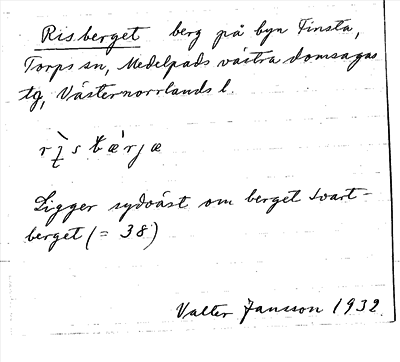 Risberget berg på byn Finsta,
Torps sn, Medelpads västra domsagas
tg, Västernorrlands l.
Ligger sydväst om berget Svart-
berget (= 38)
Valter Jansson 1932.